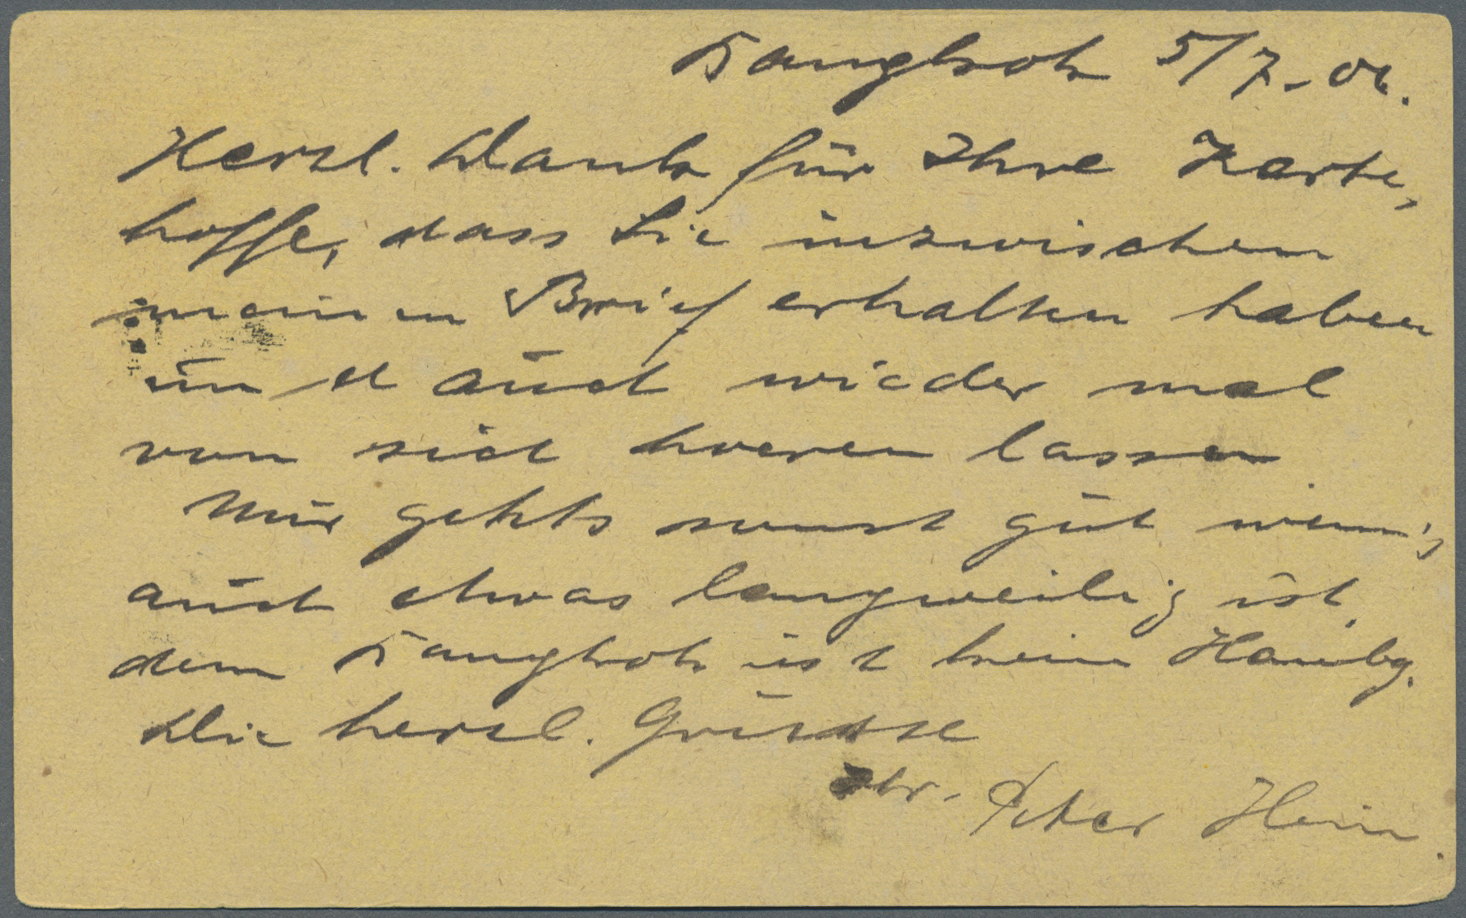 Bangkok 5/7-06.
Herzl. Dank für Ihre Karte,
hoffe, dass Sie inzwischen
meinen Brief erhalten haben
und auch wieder mal
von sich hoeren lassen
Mir gehts sonst gut wenn's
auch etwas langweilig ist,
denn Bangkok ist kein Hambg.
Die herzl. Grüsse
Ihr. Peter Hein.